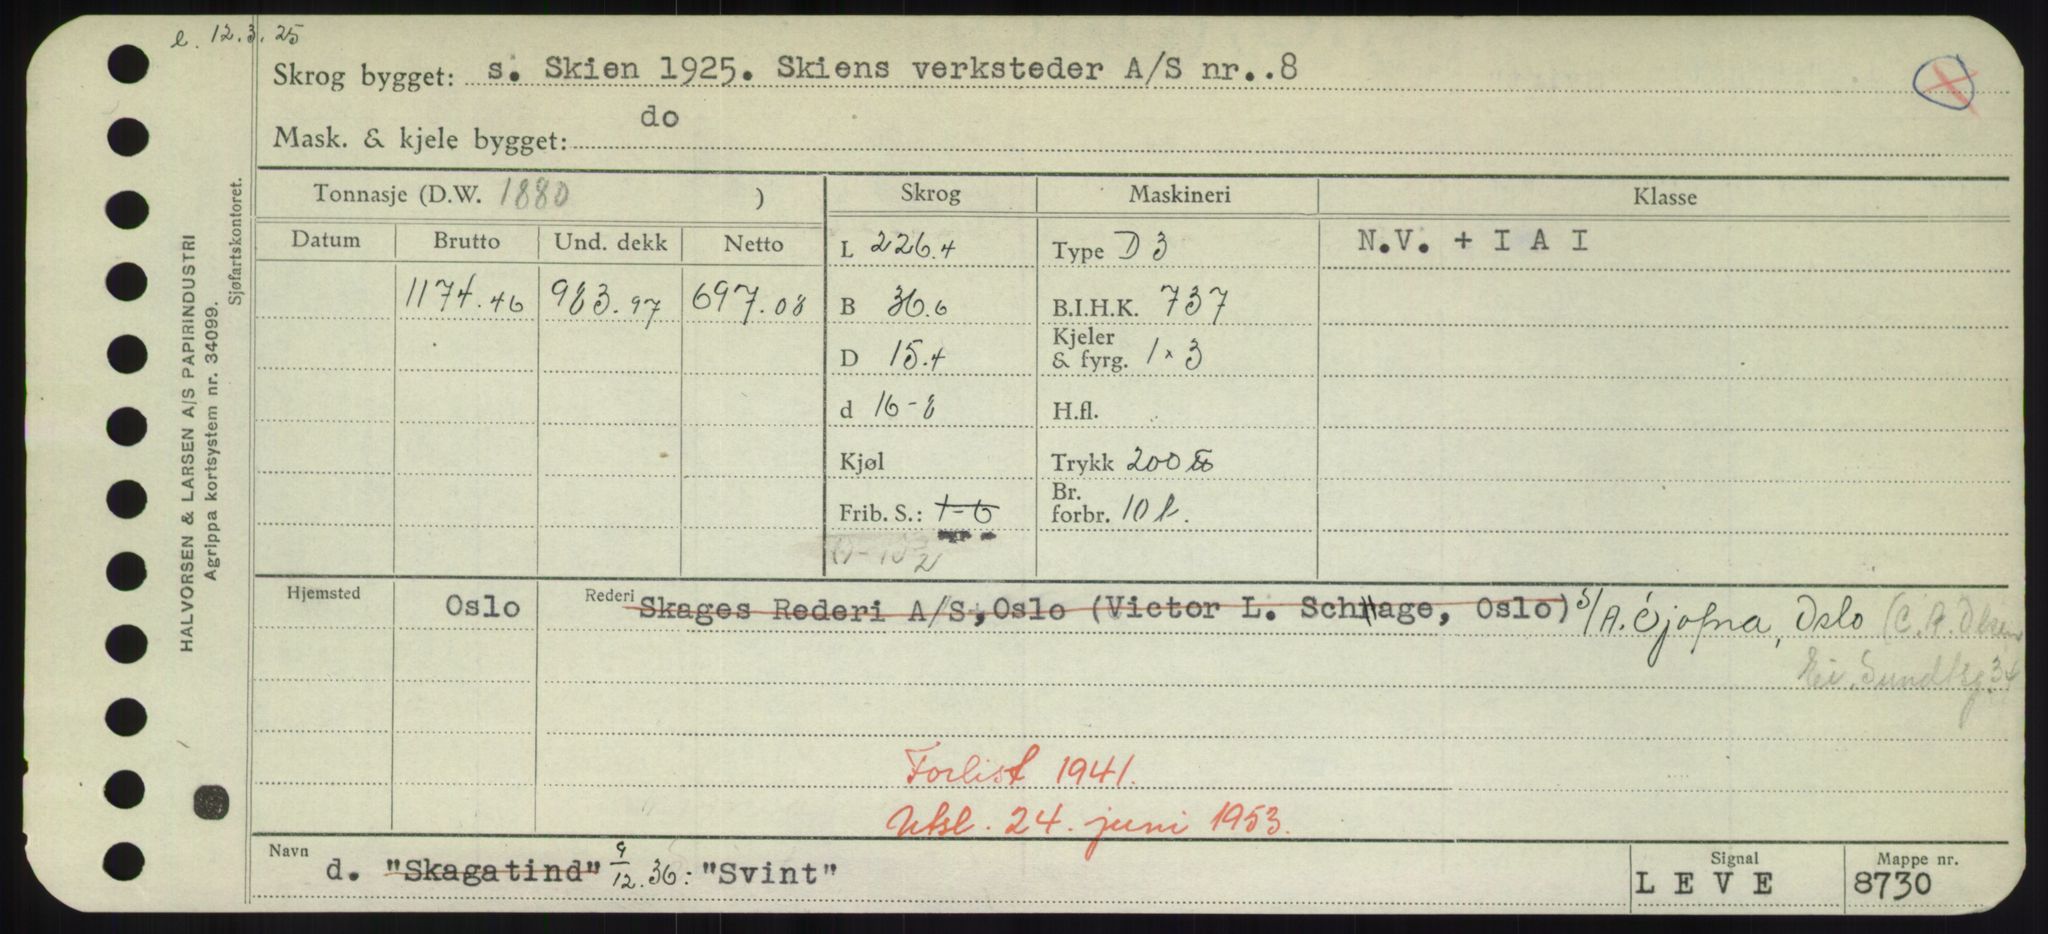 l. 12.3.25
Skrog bygget: s. Skien 1925. Skiens verksteder A/S nr..8
Mask. & kjele bygget: do
Tonnasje (D.W. 1880 ) Skrog Maskineri Klasse
Datum Brutto Und. dekk Netto L 226.4 Type D 3 N.V. + I A I
1174.46 983.97 697.08 B 36.6 B.I.H.K. 737
D 15.4 Kjeler & fyrg. 1 x 3
d 16-8 H.fl.
Kjøl Trykk 200 ℔
Frib. S.: 1-6 Br. forbr. 10 t.
Hjemsted Oslo Rederi Skages Rederi A/S, Oslo (Victor L. Schage, Oslo) S/A. Sjofna, Oslo (C. A. Olsen
Ei. Sundtsg. 34
Forlist 1941.
Utsl. 24. juni 1953.
Navn d. "Skagatind" 9/12.36: "Svint" Signal L E V E Mappe nr. 8730
HALVORSEN & LARSEN A/S PAPIRINDUSTRI
Agrippa kortsystem nr. 34099.
Sjøfartskontoret.